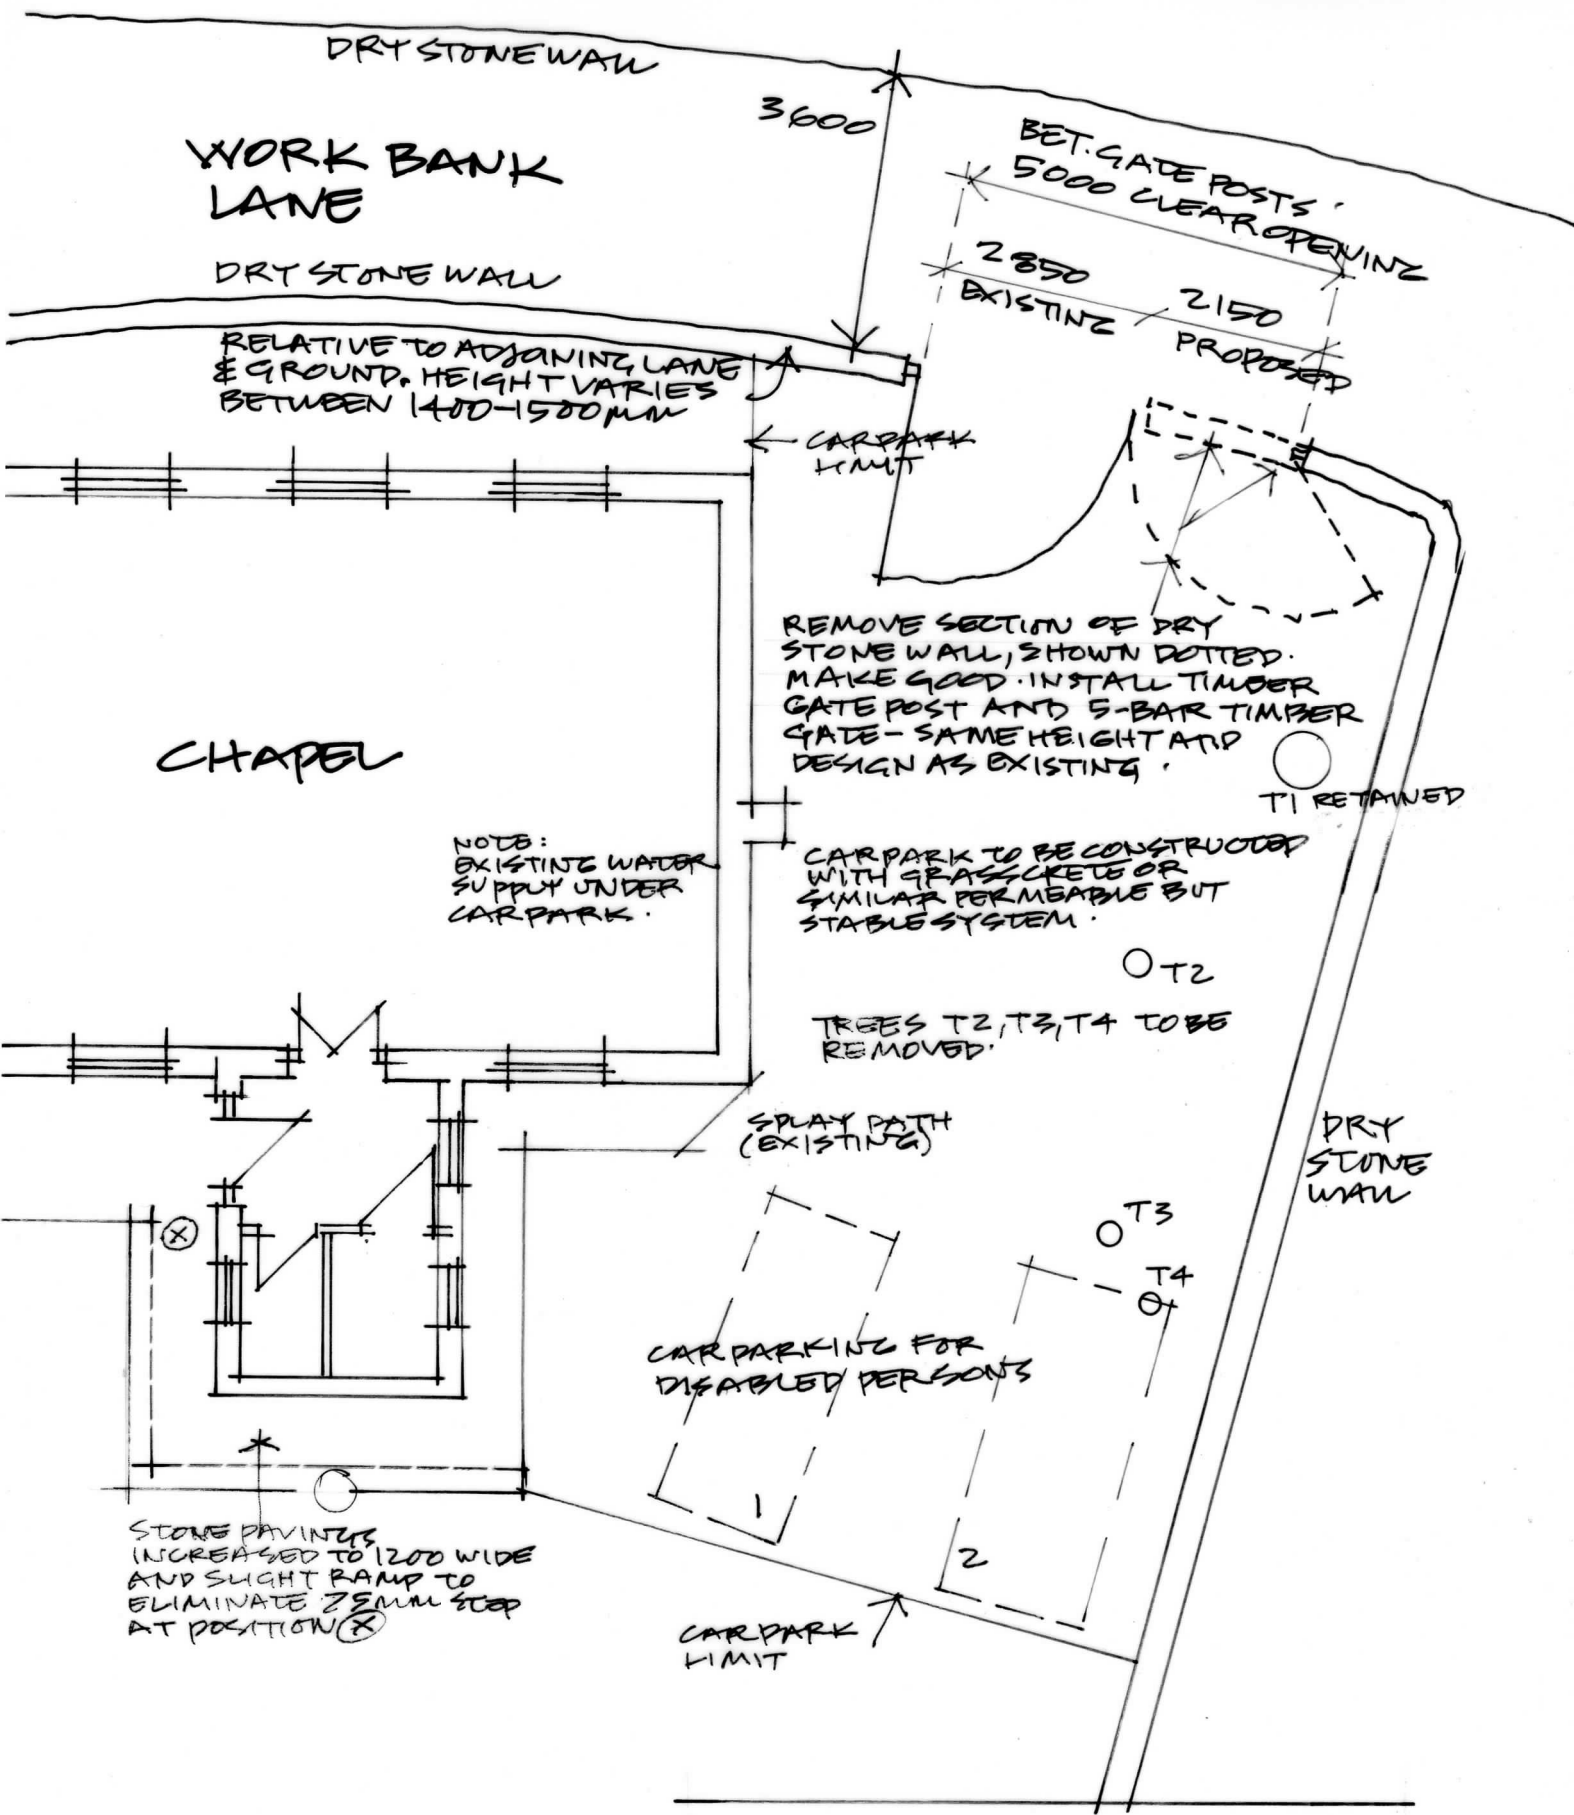 DRY STONE WALL
3600
BET. GATE POSTS.
5000 CLEAR OPENING
WORK BANK
LANE
2850
EXISTING
2150
PROPOSED
DRY STONE WALL
RELATIVE TO ADJOINING LANE
& GROUND. HEIGHT VARIES
BETWEEN 1400-1500MM
CARPARK
LIMIT
REMOVE SECTION OF DRY
STONE WALL, SHOWN DOTTED.
MAKE GOOD. INSTALL TIMBER
GATE POST AND 5-BAR TIMBER
GATE - SAME HEIGHT AND
DESIGN AS EXISTING.
CHAPEL
T1 RETAINED
NOTE:
EXISTING WATER
SUPPLY UNDER
CARPARK.
CARPARK TO BE CONSTRUCTED
WITH GRASSCRETE OR
SIMILAR PERMEABLE BUT
STABLE SYSTEM.
T2
TREES T2, T3, T4 TO BE
REMOVED.
SPLAY PATH
(EXISTING)
DRY
STONE
WALL
X
T3
T4
CAR PARKING FOR
DISABLED PERSONS
1
2
STONE PAVINGS
INCREASED TO 1200 WIDE
AND SLIGHT RAMP TO
ELIMINATE 25MM STEP
AT POSITION X
CARPARK
LIMIT